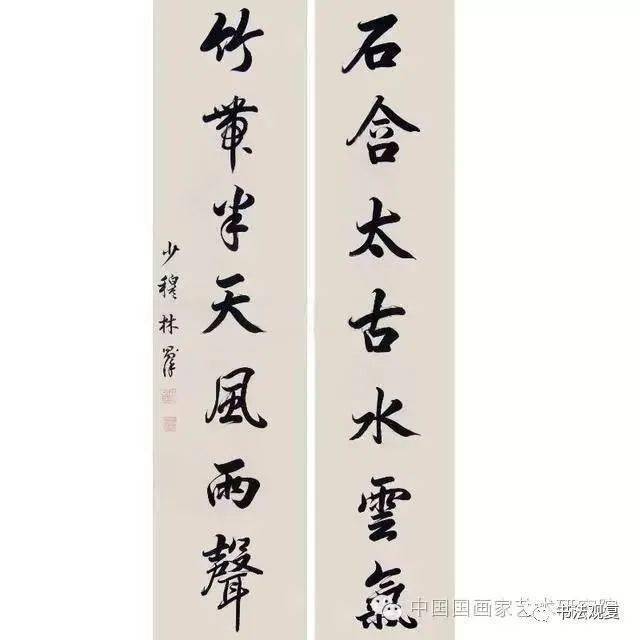 石含太古水雲氣
竹帶半天風雨聲
少穆林則徐
中国国画家艺术研究院
书法观复